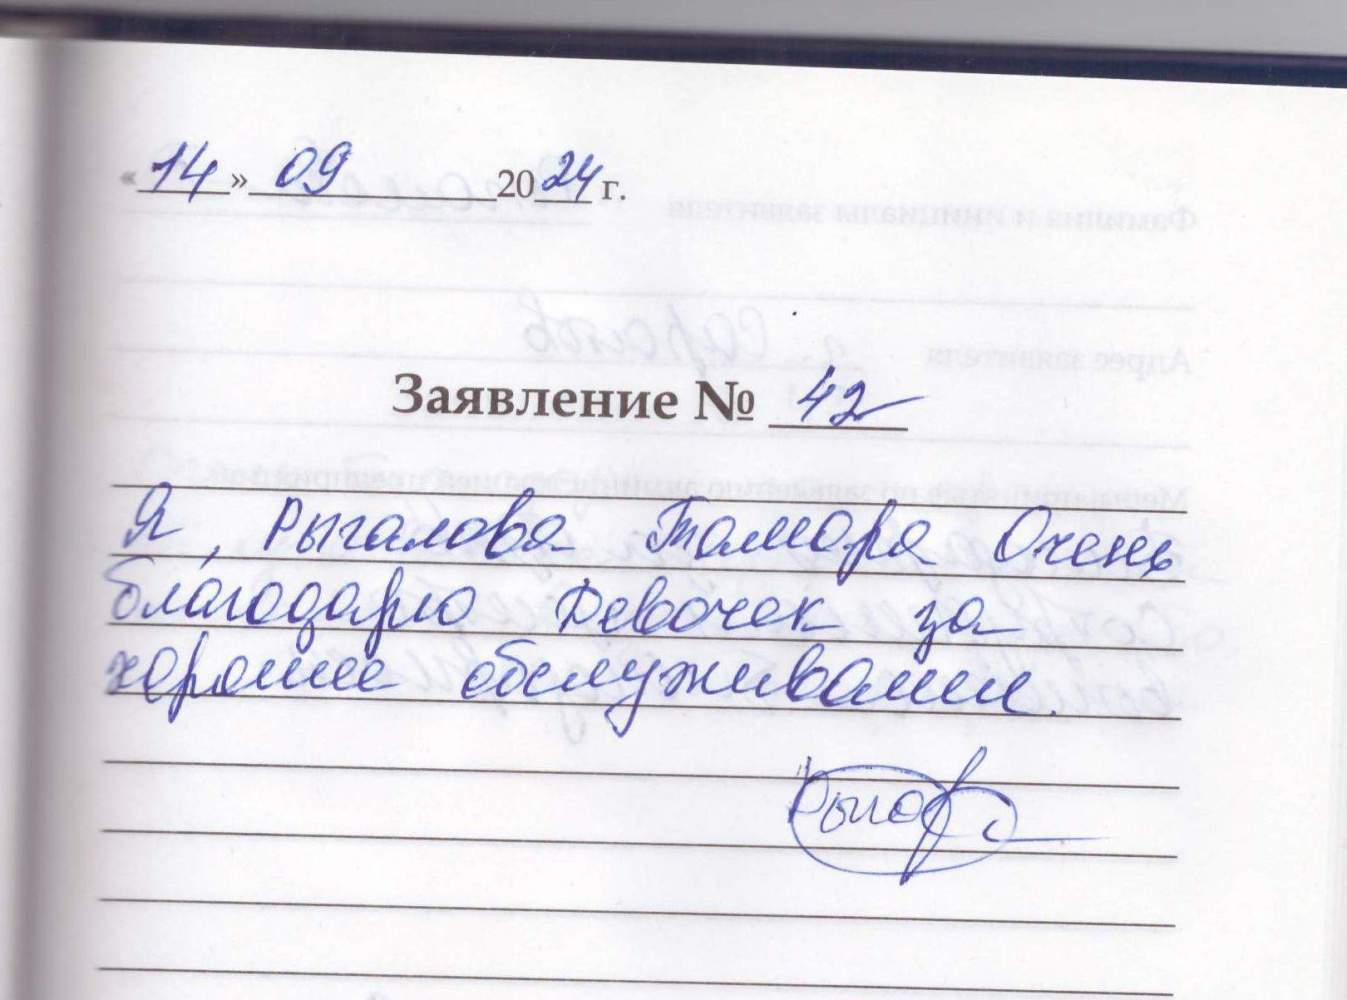 «14» 09 2024 г.
Заявление № 42
Я, Рыгалова Тамара Очень
благодарю Девочек за
хорошее обслуживание.